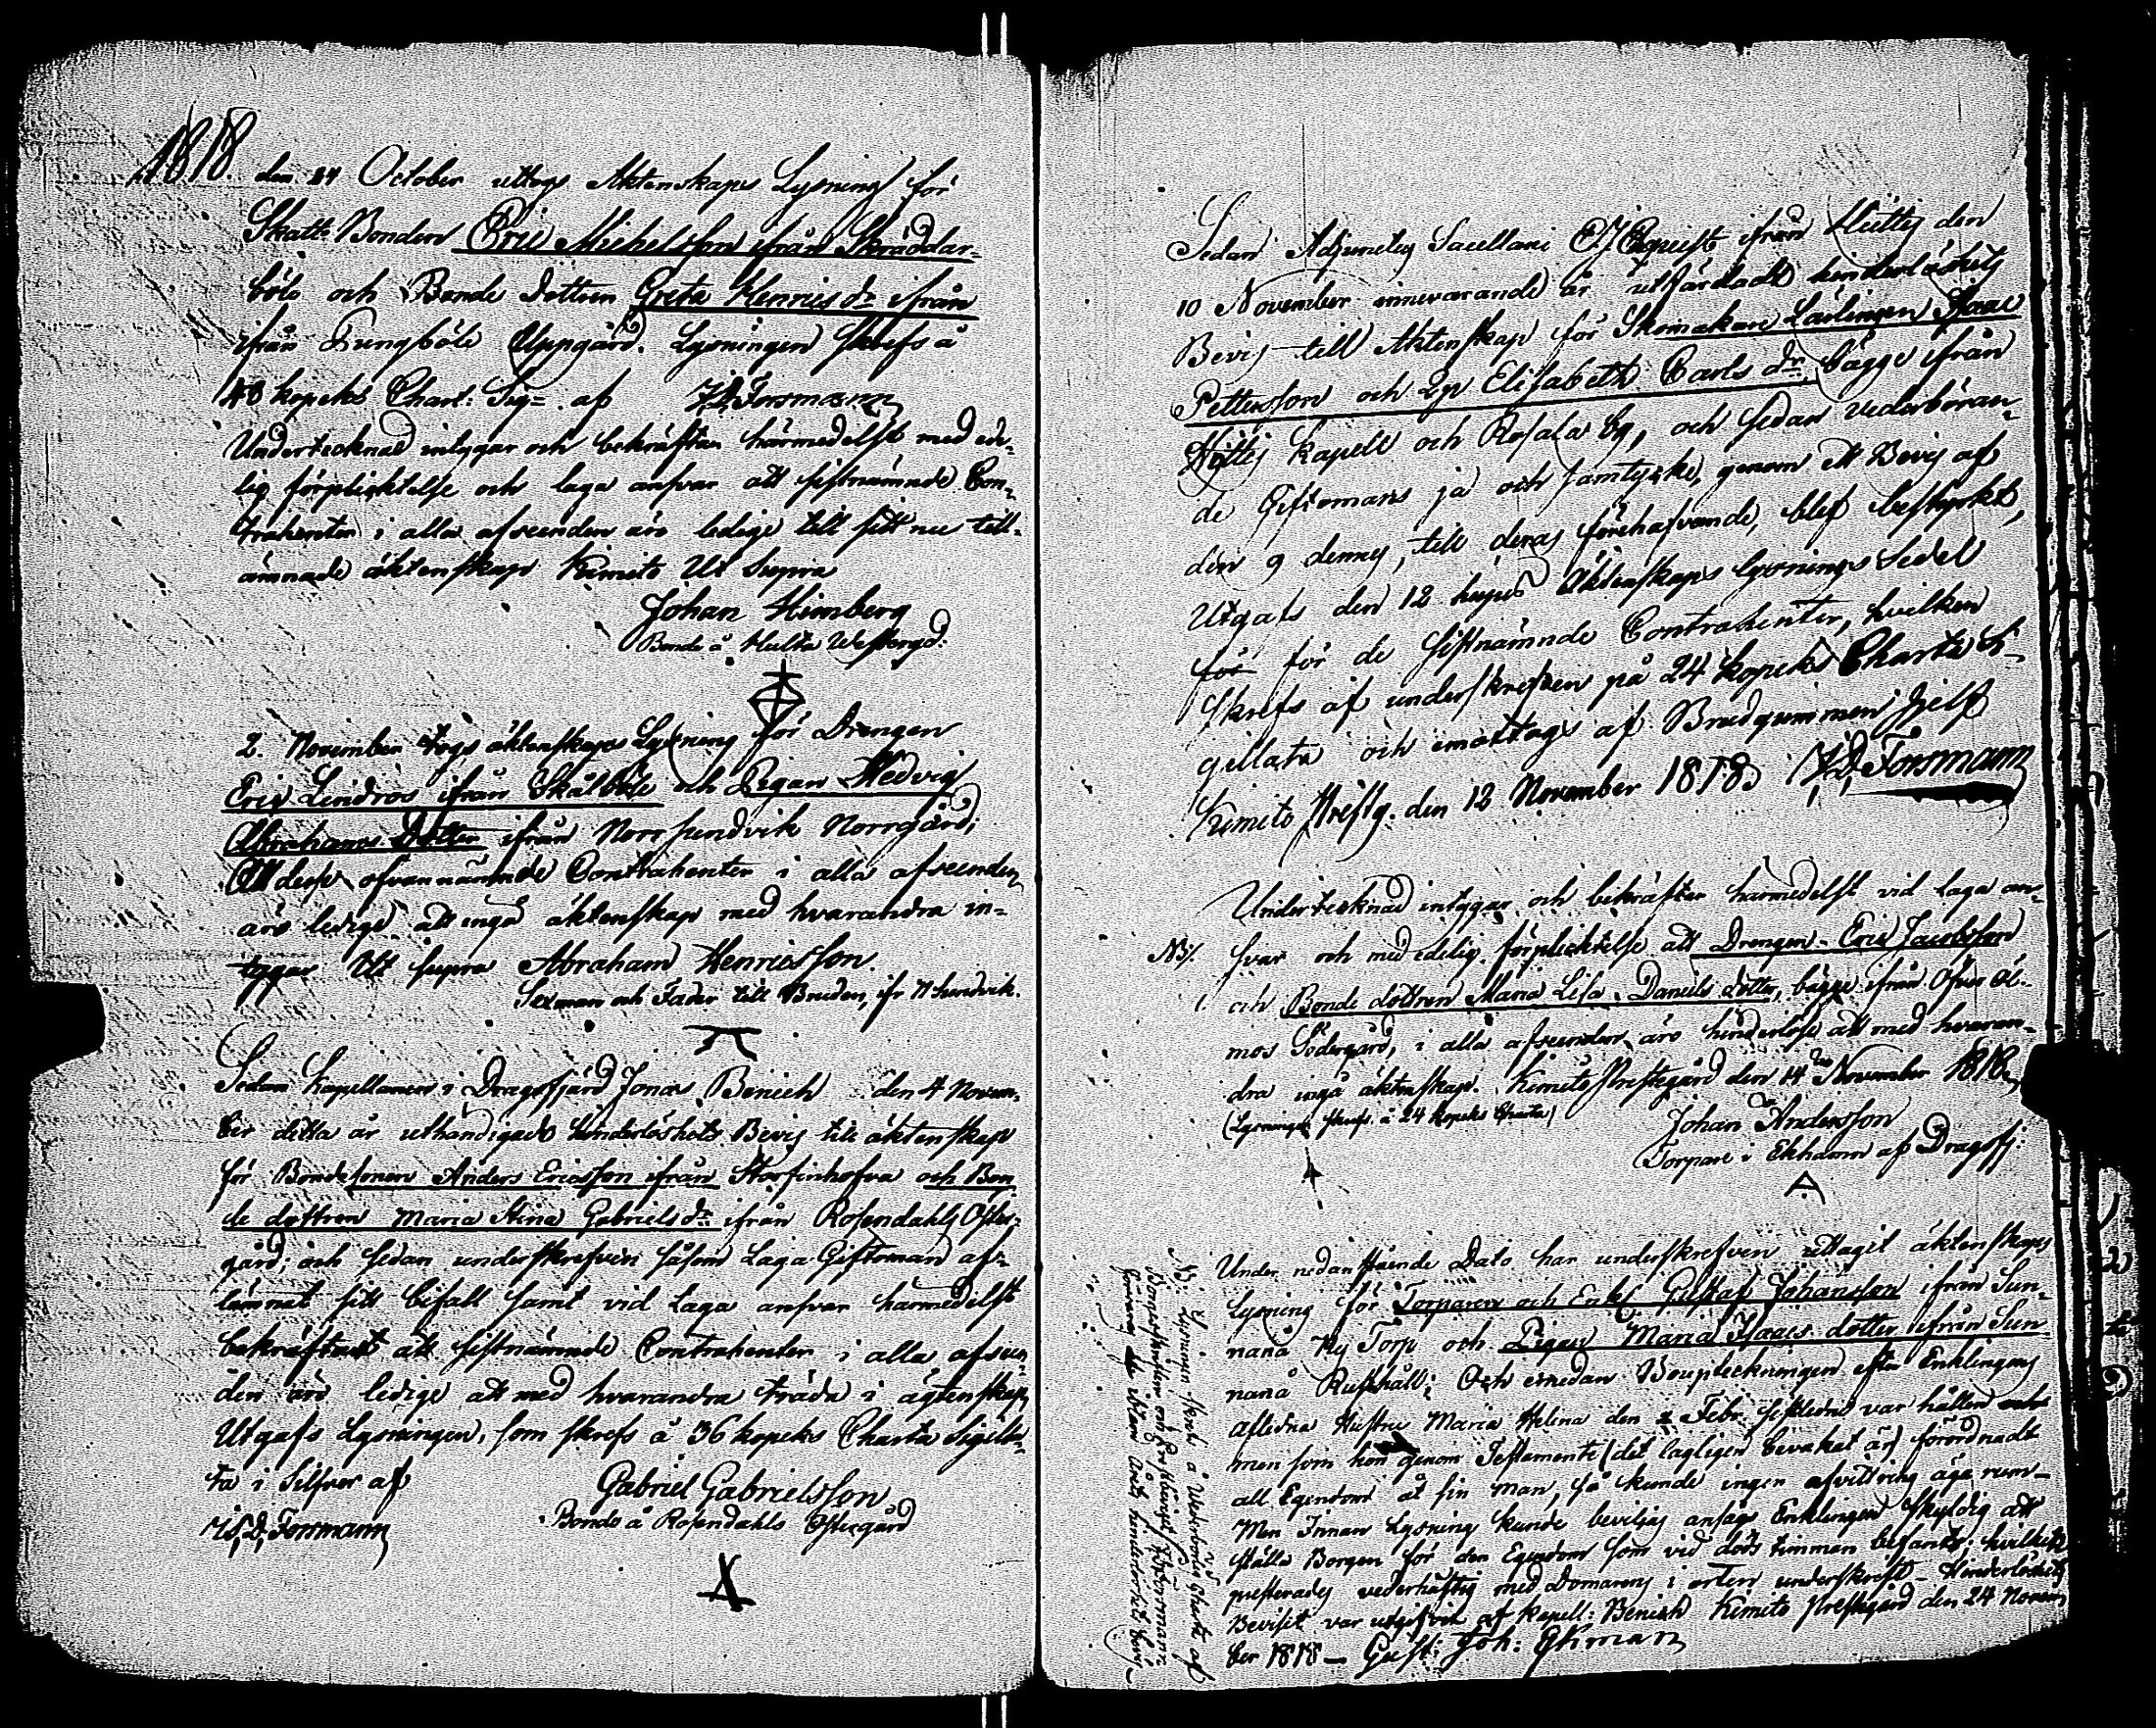 1818. den 24 October uttogs Äktenskaps Lysning för
Skatte Bonden Eric Michelsson ifrån Skräddar-
böle och Bonde dottren Greta Henrics dr ifrån
ifrån Rungböle Uppgård. Lysningen skrefs å
48 kopeks Chart: Sig= af J.D. Forsmann
Undertecknad intygar och bekräftar härmedelst med ede-
lig förplicktelse och laga ansvar att sistnämnde Con-
trahenter i alla afseenden äro ledige till sitt nu till-
ämnade äktenskap Kimito Ut Supra
Johan Himberg
Bonde å Hulta Westergd:
2. November togs äktenskaps Lysning för Drengen
Eric Lindros ifrån Skålböle och Pigan Hedvig
Abrahams Dotter ifrån Norrsundvik Norrgård;
Att desse ofvannämnde Contrahenter i alla afseenden
äro ledige att ingå äktenskap med hvarandra in-
tygar Ut supra Abraham Henricsson.
Sexman och Fader till Bruden, ifr N Sundvik.
Sedan Kapellanen i Dragsfjärd Jonas Benich den 4 Novem-
ber detta år uthändigadt hinderlöshets Bevis till äktenskap
för Bondesonen Anders Ericsson ifrån Storfinhofva och Bon
de dottren Maria Stina Gabriels dr ifrån Rosendahls Öster-
gård; och sedan underskrefven såsom Laga Giftoman af-
lämnat sitt bifall samt vid laga ansvar harmedelst
bekräftat att sistnämnde Contrahenter i alla afseen-
den äro ledige att med hvarandra träda i ägtenskap
Utgafs Lysningen, som skrefs å 36 kopeks Charta Sigilla-
ta i Silfver af Gabriel Gabrielsson
J.D. Forsmann Bonde å Rosendahls Östergård
Sedan Adjunctus Sacellani EJ Eqveist ifrån Hittis den
10 November innevarande år utfärdadt hinderlöshets
Bevis till Äktenskap för Skomakare Lärlingen Isaac
Pettersson och Pig. Elisabeth Carls dr. bägge ifrån
Hittis Kapell och Rosala by, och sedan vederböran-
de Giftomans ja och samtycke, genom ett Bevis af
den 9 dennes, till deras förehafvande, blef bestyrkt,
Utgafs den 12 hujus Äktenskaps lysnings Sedel
för för de sistnämnde Contrahenter, hvilken
skrefs af underskrefven på 24 kopeks Charta Si-
gillata och emottogs af Brudgummen sjelf
Kimito Prestg. den 12 November 1818 J.D. Forsmann
Undertecknad intygar och bekräfter harmedelst vid laga an-
NB. svar och med edelig förplicktelse att Drengen Eric Jacobsson
och Bonde dottren Maria Lisa Daniels dotter, bägge ifrån Öfver Öl-
mos Södergård, i alla afseenden äro hinderlöse att med hvaran-
dra ingå äktenskap. Kimito Prestegård den 14 November 1818.
(Lysningen skrefs å 24 kopeks Charta) Johan Andersson
Torpare i Ekhamn af Dragsfj:
Under nedanstående Dato har underskrefven uttagit äktenskaps
lysning för Torparen och Enkl. Gustaf Johansson ifrån Sun-
nanå Ny Torp och Pigan Maria Isaacs dotter ifrån Sun
nanå Rusthåll; Och emedan Bouptekningen efter Enklingens
afledna Hustru Maria Helena den 2 Febr. sistledne var hållen
men som hon genom Testamente (det lagligen bevakat är) förordnadt
all Egendom åt sin man, så kunde ingen afvittring äga rum-
Men Innan Lysning kunde beviljas ansågs Enklingen skyldig att
ställa Borgen för den Egendom som vid döds timman befants; hvilket
presterades vederhäftig med Domarens i orten underskrift - Hinderlöshets
Beviset var utgifvit af Kapell: Benich Kimito Prestegård den 24 Novem
ber 1818 - Gust: Joh: Ekman
NB. Lysningen skrefs å